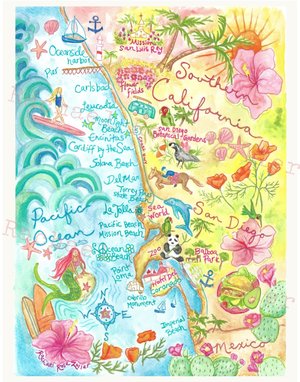 Oceanside
harbor
Pier
Mission
San Luis Rey
Carlsbad
Flower
fields
Southern
California
Leucadia
Moonlight
Beach
Encinitas
Cardiff by the Sea
San Diego
Botanical Gardens
Solana Beach
Del Mar
Torrey Pines
State Beach
La Jolla
Sea
World
San Diego
Pacific
Ocean
Pacific Beach
Mission Beach
Ocean
Beach
Zoo
Balboa
Park
Point
Loma
Hotel Del
Coronado
Cabrillo
Monument
Imperial
Beach
Mexico
N
W
E
S